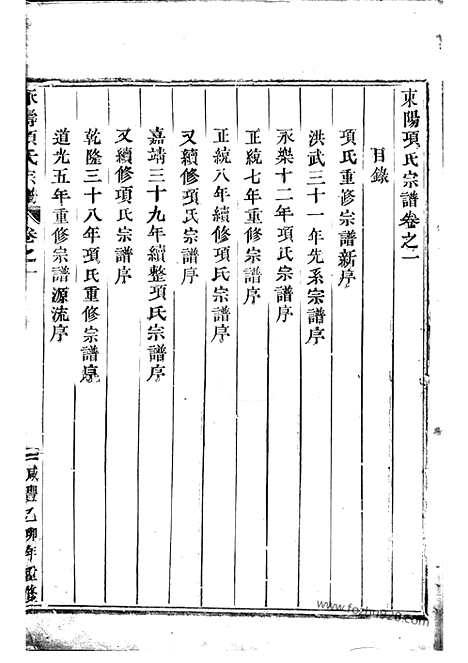 東陽項氏宗譜卷之一
目錄
項氏重修宗譜新序
洪武三十一年先系宗譜序
永樂十二年項氏宗譜序
正統七年宗譜序
正統八年續修項氏宗譜序
又續修項氏宗譜序
嘉靖三十九年續整項氏宗譜序
又續修項氏宗譜序
乾隆三十八年項氏重修宗譜序
道光五年重修宗譜源流序
項氏宗譜 卷之一
咸豐乙卯年重修